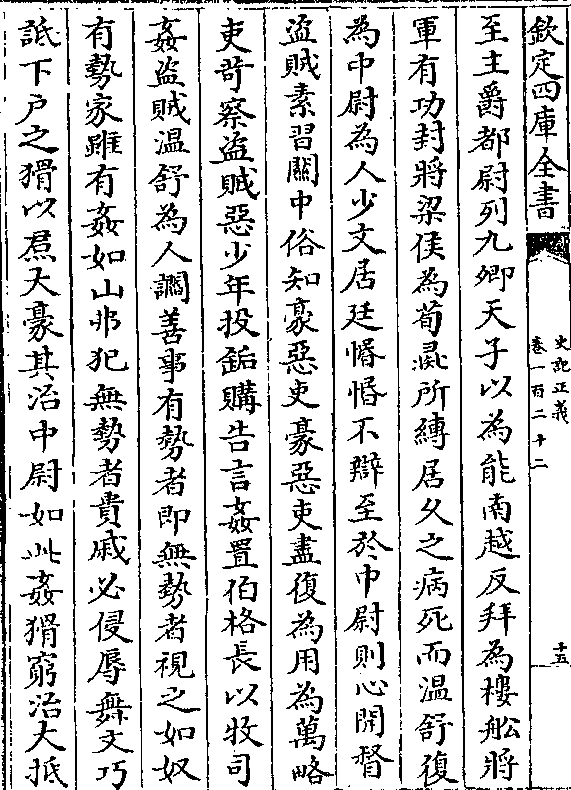 欽定四庫全書
史記正義
卷一百二十二
十五
至主爵都尉列九卿天子以為能南越反拜為樓舩將
軍有功封將梁侯為荀彘所縛居久之病死而溫舒復
為中尉為人少文居廷惛惛不辯至於中尉則心開督
盜賊素習關中俗知豪惡吏豪惡吏盡復為用為萬略
吏苛察盜賊惡少年投缿購告言姦置伯格長以牧司
姦盜賊溫舒為人讇善事有勢者即無勢者視之如奴
有勢家雖有姦如山弗犯無勢者貴戚必侵辱舞文巧
詆下户之猾以焄大豪其治中尉如此姦猾窮治大抵